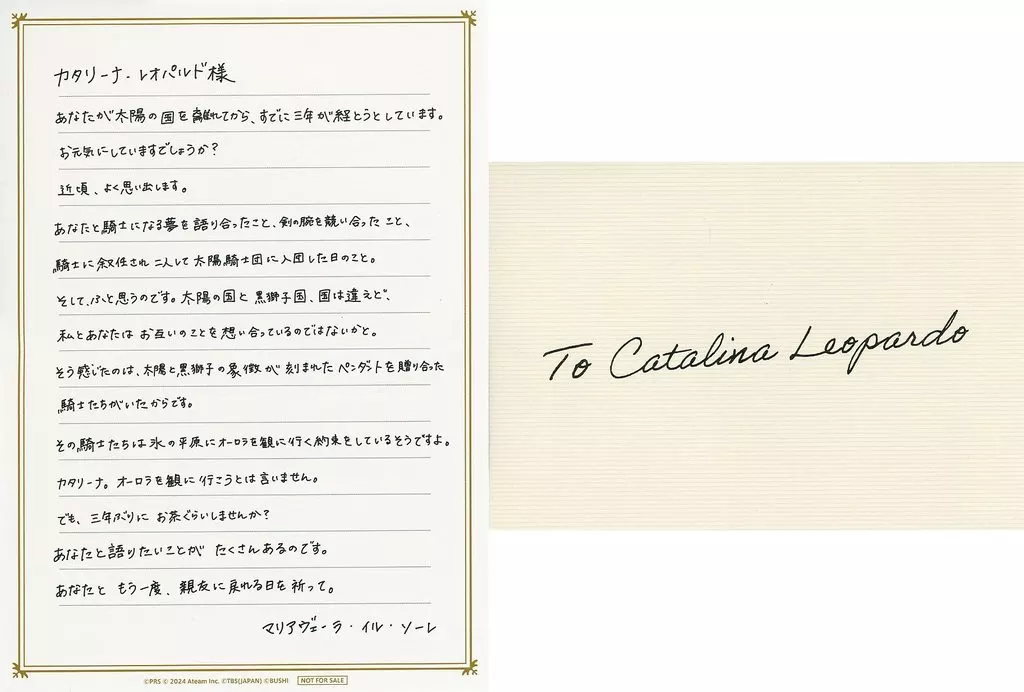 カタリーナ・レオパルド様
あなたが太陽の国を離れてから、すでに三年が経とうとしています。
お元気にしていますでしょうか？
近頃、よく思い出します。
あなたと騎士になる夢を語り合ったこと、剣の腕を競い合ったこと、
騎士に叙任され二人して太陽騎士団に入団した日のこと。
そして、ふと思うのです。太陽の国と黒獅子国、国は違えど、
私とあなたはお互いのことを想い合っているのではないかと。
そう感じたのは、太陽と黒獅子の象徴が刻まれたペンダントを贈り合った
騎士たちがいたからです。
その騎士たちは氷の平原にオーロラを観に行く約束をしているそうですよ。
カタリーナ。オーロラを観に行こうとは言いません。
でも、三年ぶりにお茶ぐらいしませんか？
あなたと語りたいことがたくさんあるのです。
あなたともう一度、親友に戻れる日を祈って。
マリアヴェーラ・イル・ソーレ
©PRS © 2024 Ateam Inc. ©TBS(JAPAN) ©BUSHI NOT FOR SALE
To Catalina Leopardo